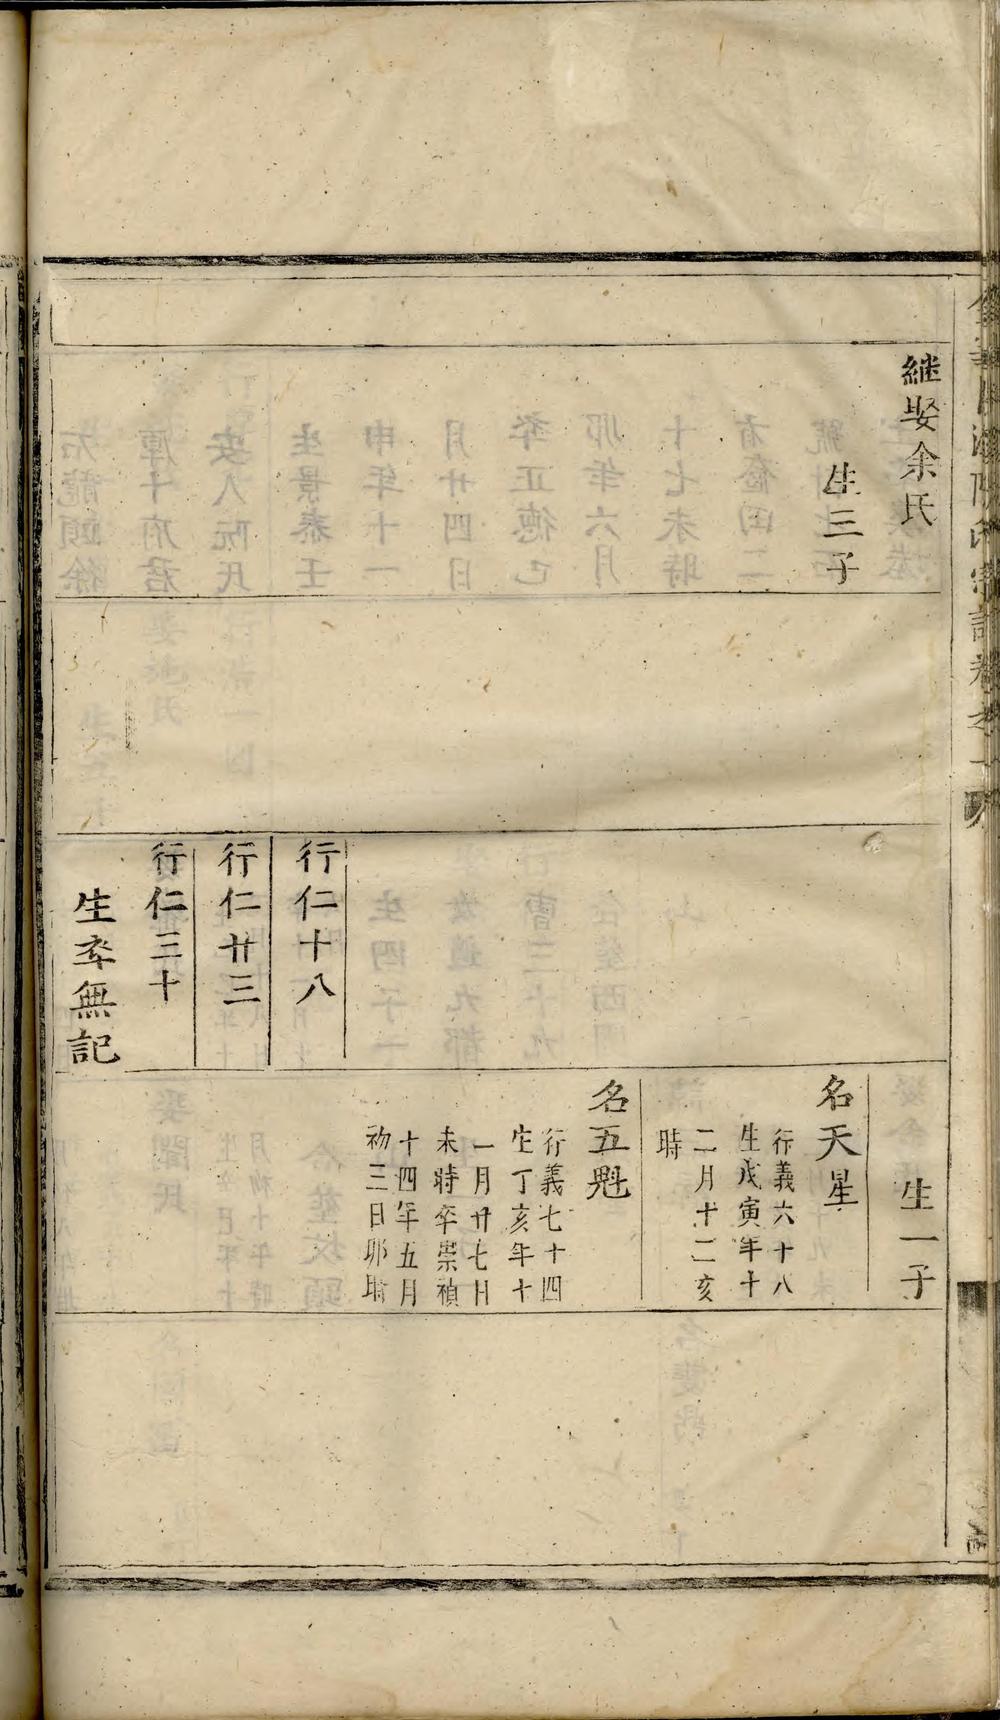 继娶余氏
生三子
行仁十八
行仁廿三
行仁三十
生卒無記
生一子
名天星
行義六十八
生戊寅年十
二月十二亥
時
名五魁
行義七十四
生丁亥年十
一月廿七日
未時卒崇禎
十四年五月
初三日耶時